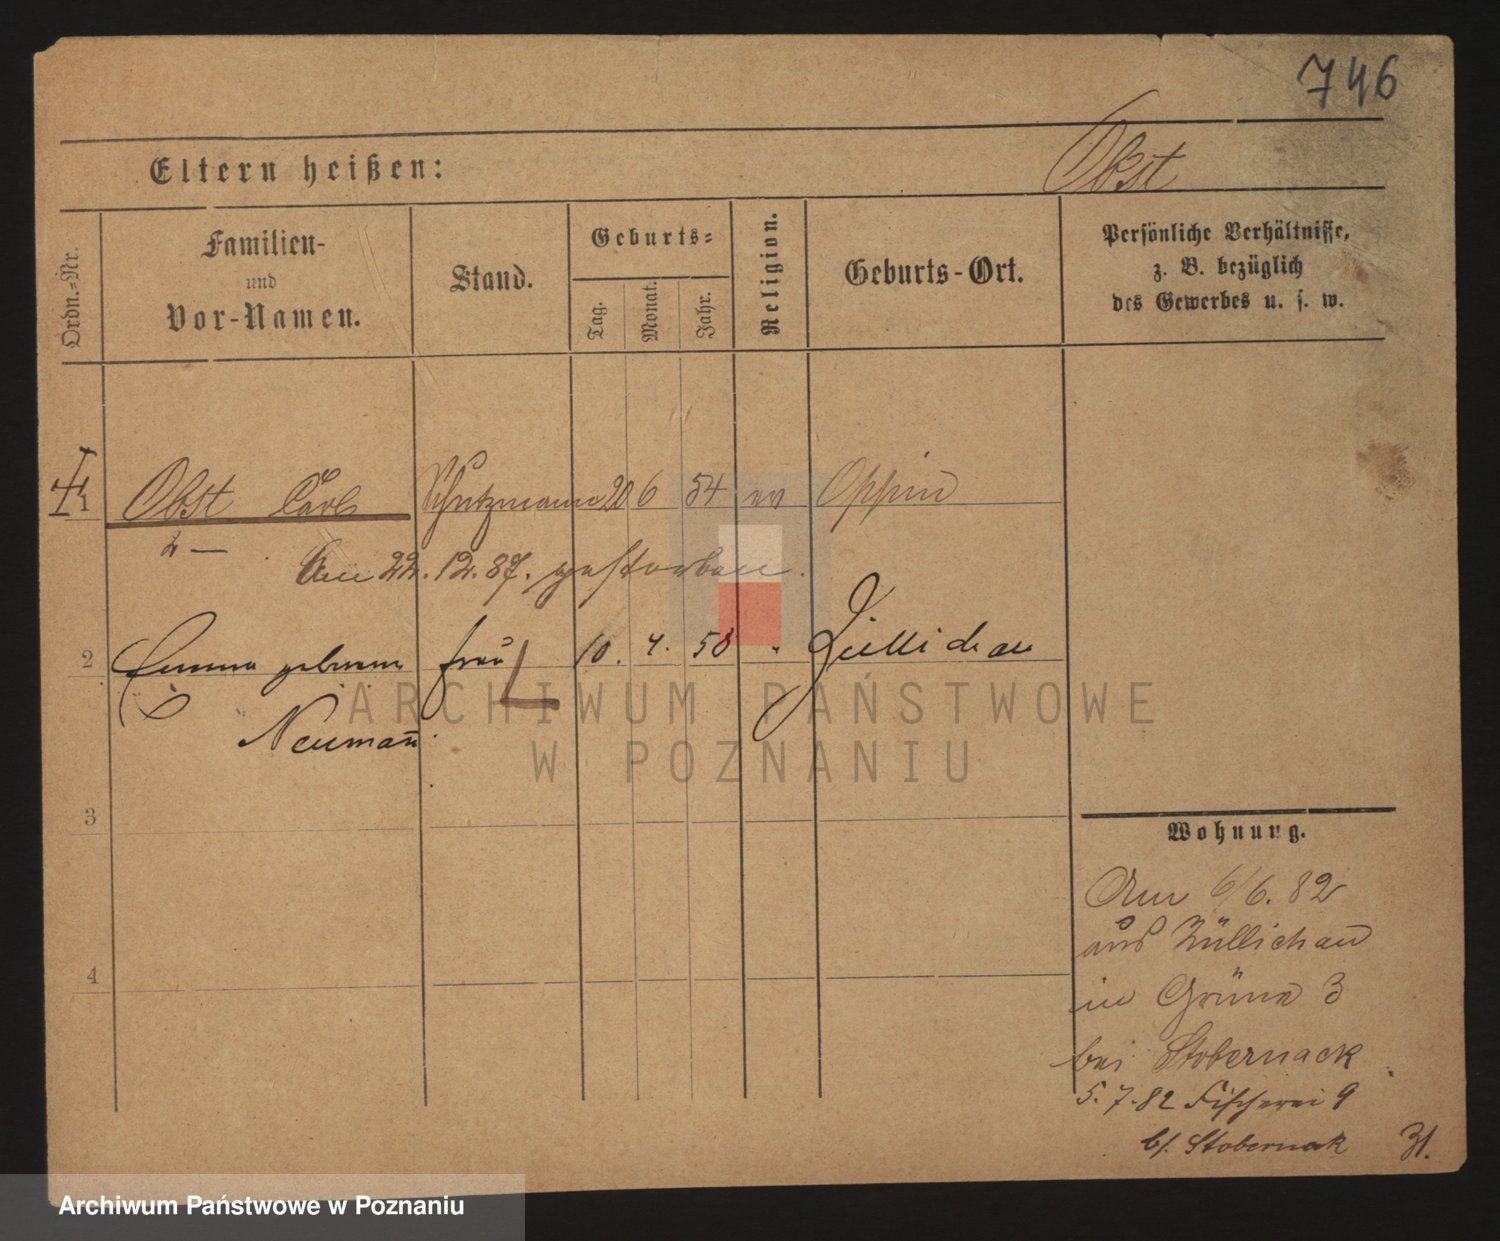 746
Eltern heißen:
Obst
Ordn.-Nr.
Familien-
und
Vor-Namen.
Stand.
Geburts-
Tag.
Monat.
Jahr.
Religion.
Geburts-Ort.
Persönliche Verhältnisse,
z. B. bezüglich
des Gewerbes u. s. w.
1 Obst Carl Schutzmann 20 6 54 ev Oppin
Am 22. 12. 87. gestorben.
2 Emma geborene Frau 10. 4. 58 " Züllichau
Neumann
ARCHIWUM PAŃSTWOWE
W POZNANIU
3
Wohnung.
Am 6/6. 82
aus Züllichau
4
in Grüne 3
bei Stobernack
5. 7. 82 Fischerei 9
b/. Stobernack 31.
Archiwum Państwowe w Poznaniu